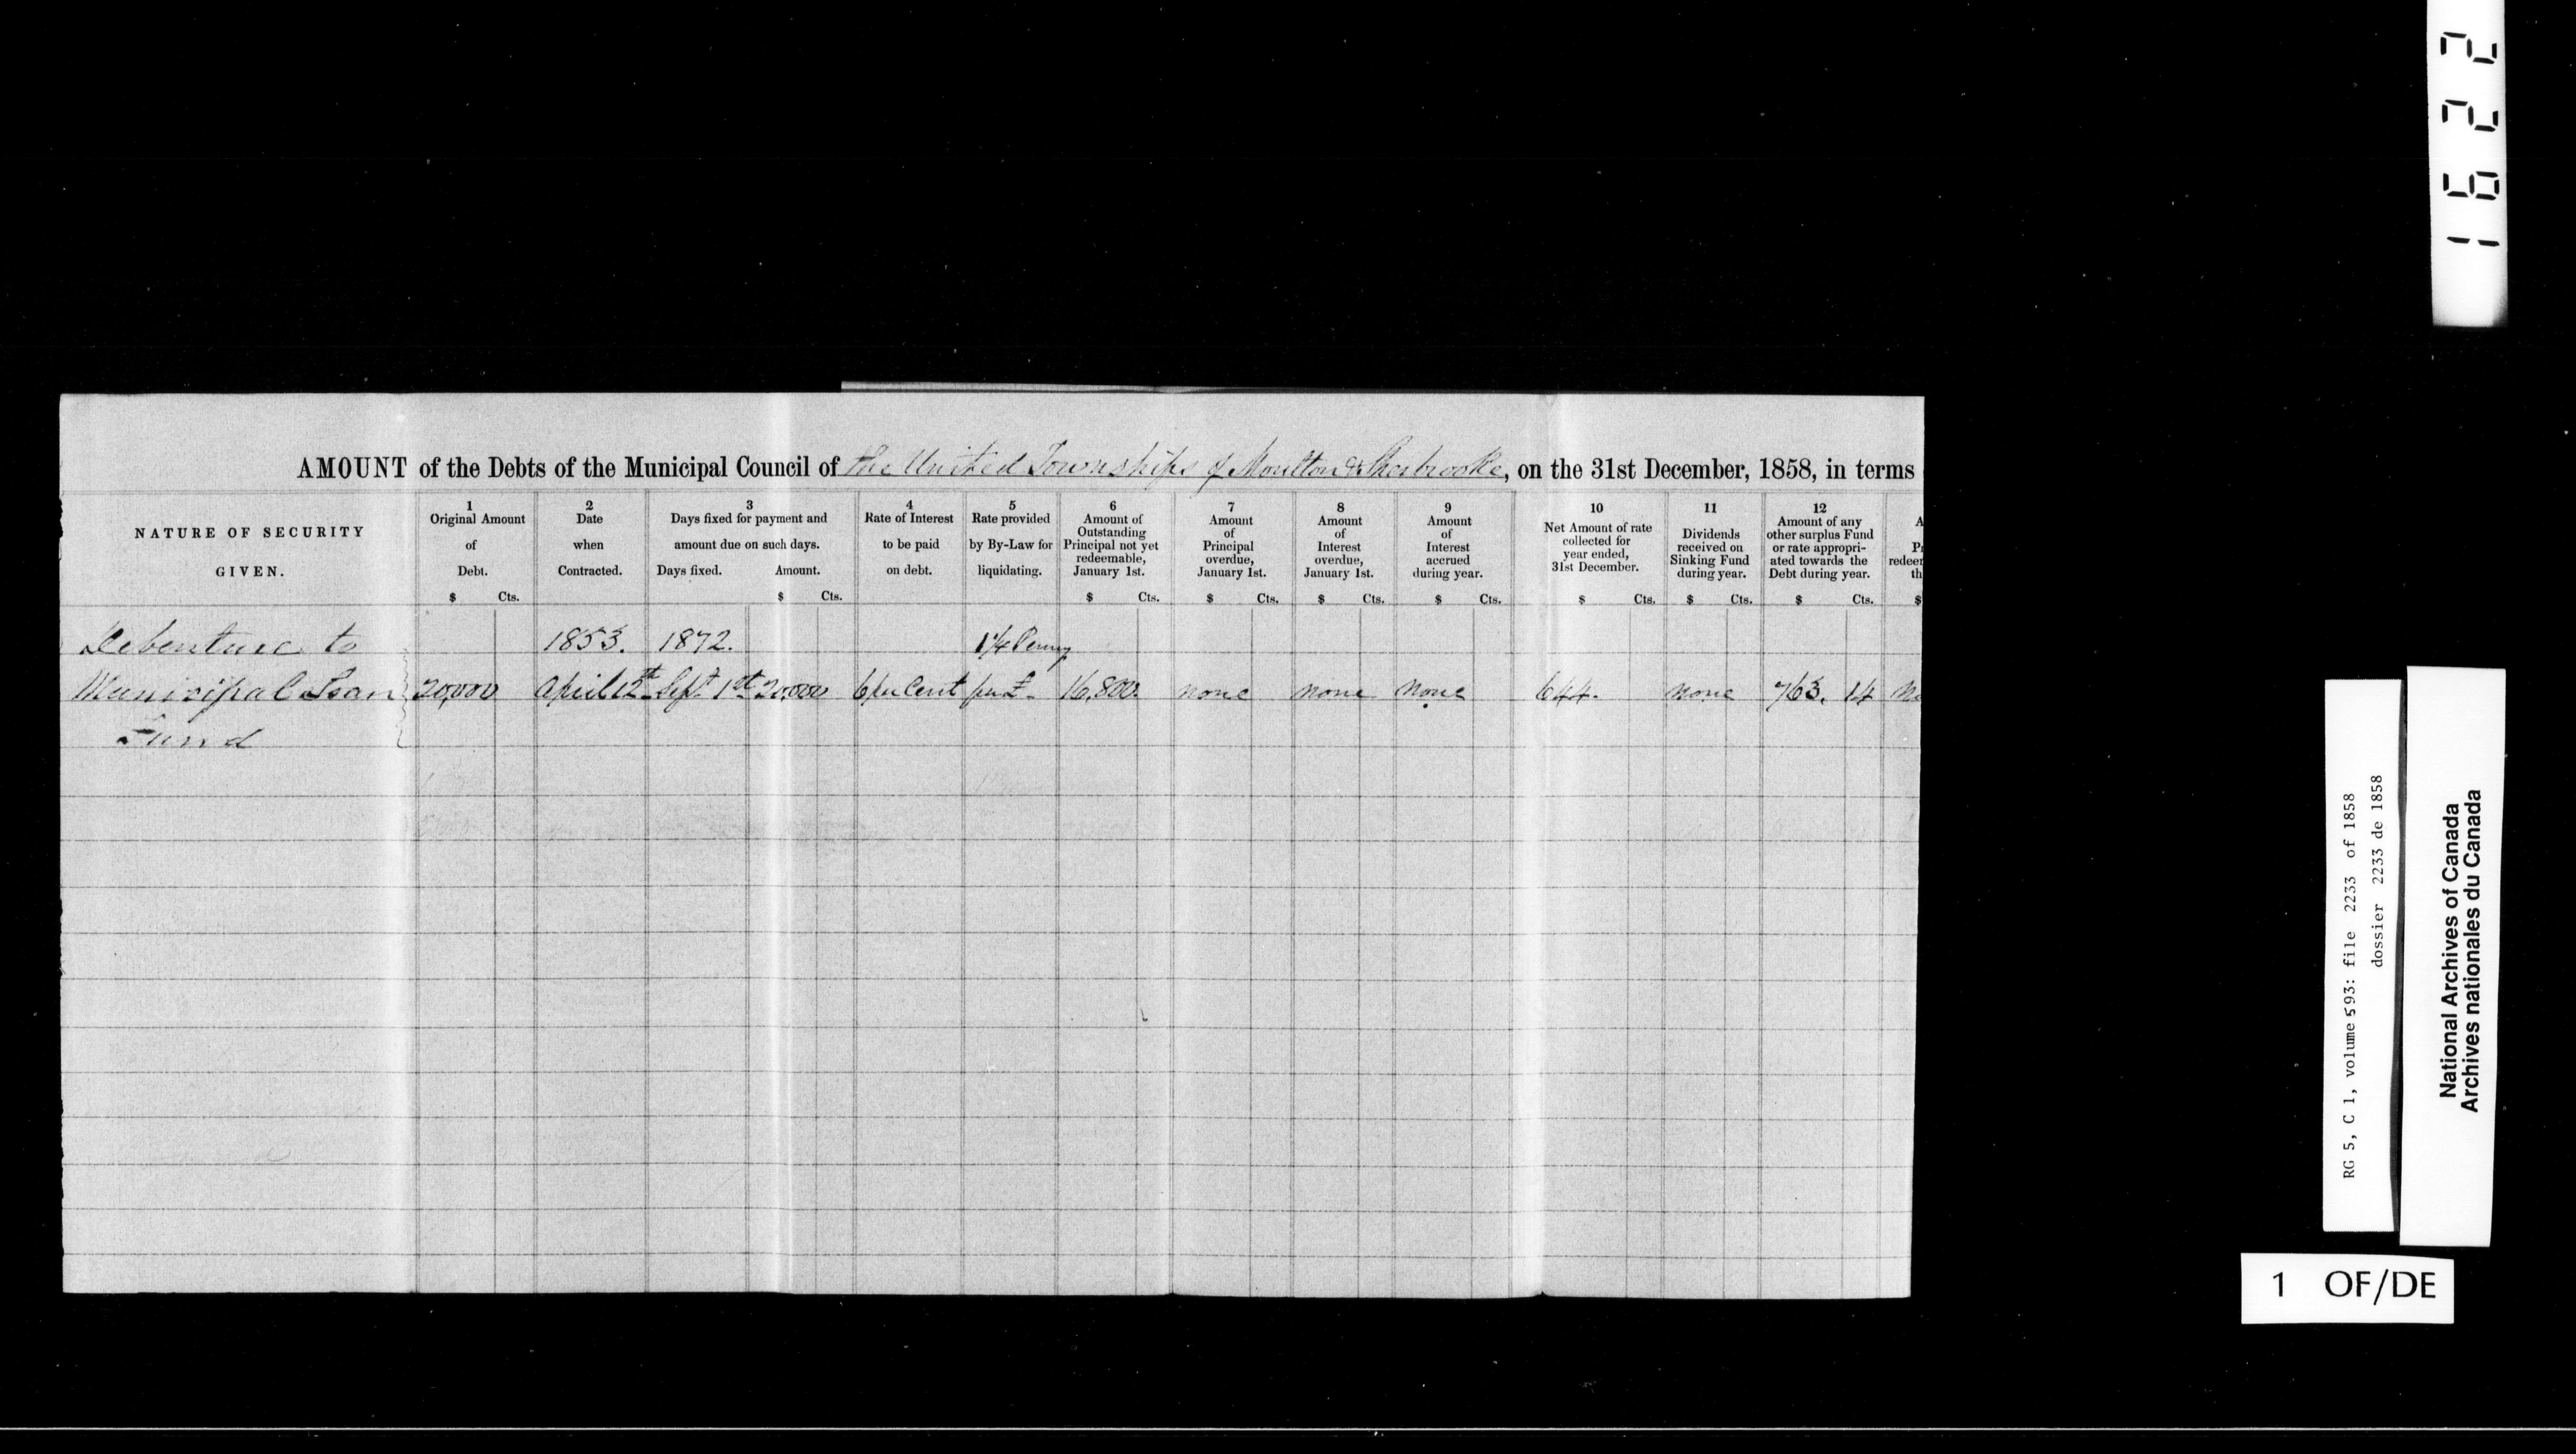 1622
AMOUNT of the Debts of the Municipal Council of the United Townships of Moulton & Sherbrooke, on the 31st December, 1858, in terms
NATURE OF SECURITY
GIVEN.
1
Original Amount
of
Debt.
$ Cts.
2
Date
when
Contracted.
3
Days fixed for payment and
amount due on such days.
Days fixed. Amount.
$ Cts.
4
Rate of Interest
to be paid
on debt.
5
Rate provided
by By-Law for
liquidating.
6
Amount of
Outstanding
Principal not yet
redeemable,
January 1st.
$ Cts.
7
Amount
of
Principal
overdue,
January 1st.
$ Cts.
8
Amount
of
Interest
overdue,
January 1st.
$ Cts.
9
Amount
of
Interest
accrued
during year.
$ Cts.
10
Net Amount of rate
collected for
year ended,
31st December.
$ Cts.
11
Dividends
received on
Sinking Fund
during year.
$ Cts.
12
Amount of any
other surplus Fund
or rate appropri-
ated towards the
Debt during year.
$ Cts.
A
Pr
redeem
th
$
Debenture to 1853. 1872. 1 1/4 Penny
Municipal Loan 20,000 April 12th Sept 1st 20,000 6 per Cent per £. 16,800. none none none 644. none 763. 14 no
Fund
RG 5, C 1, volume 593: file 2233 of 1858
dossier 2233 de 1858
National Archives of Canada
Archives nationales du Canada
1 OF/DE